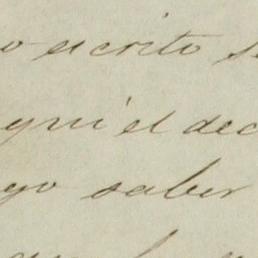 o escrito s
qui el dec
go saber